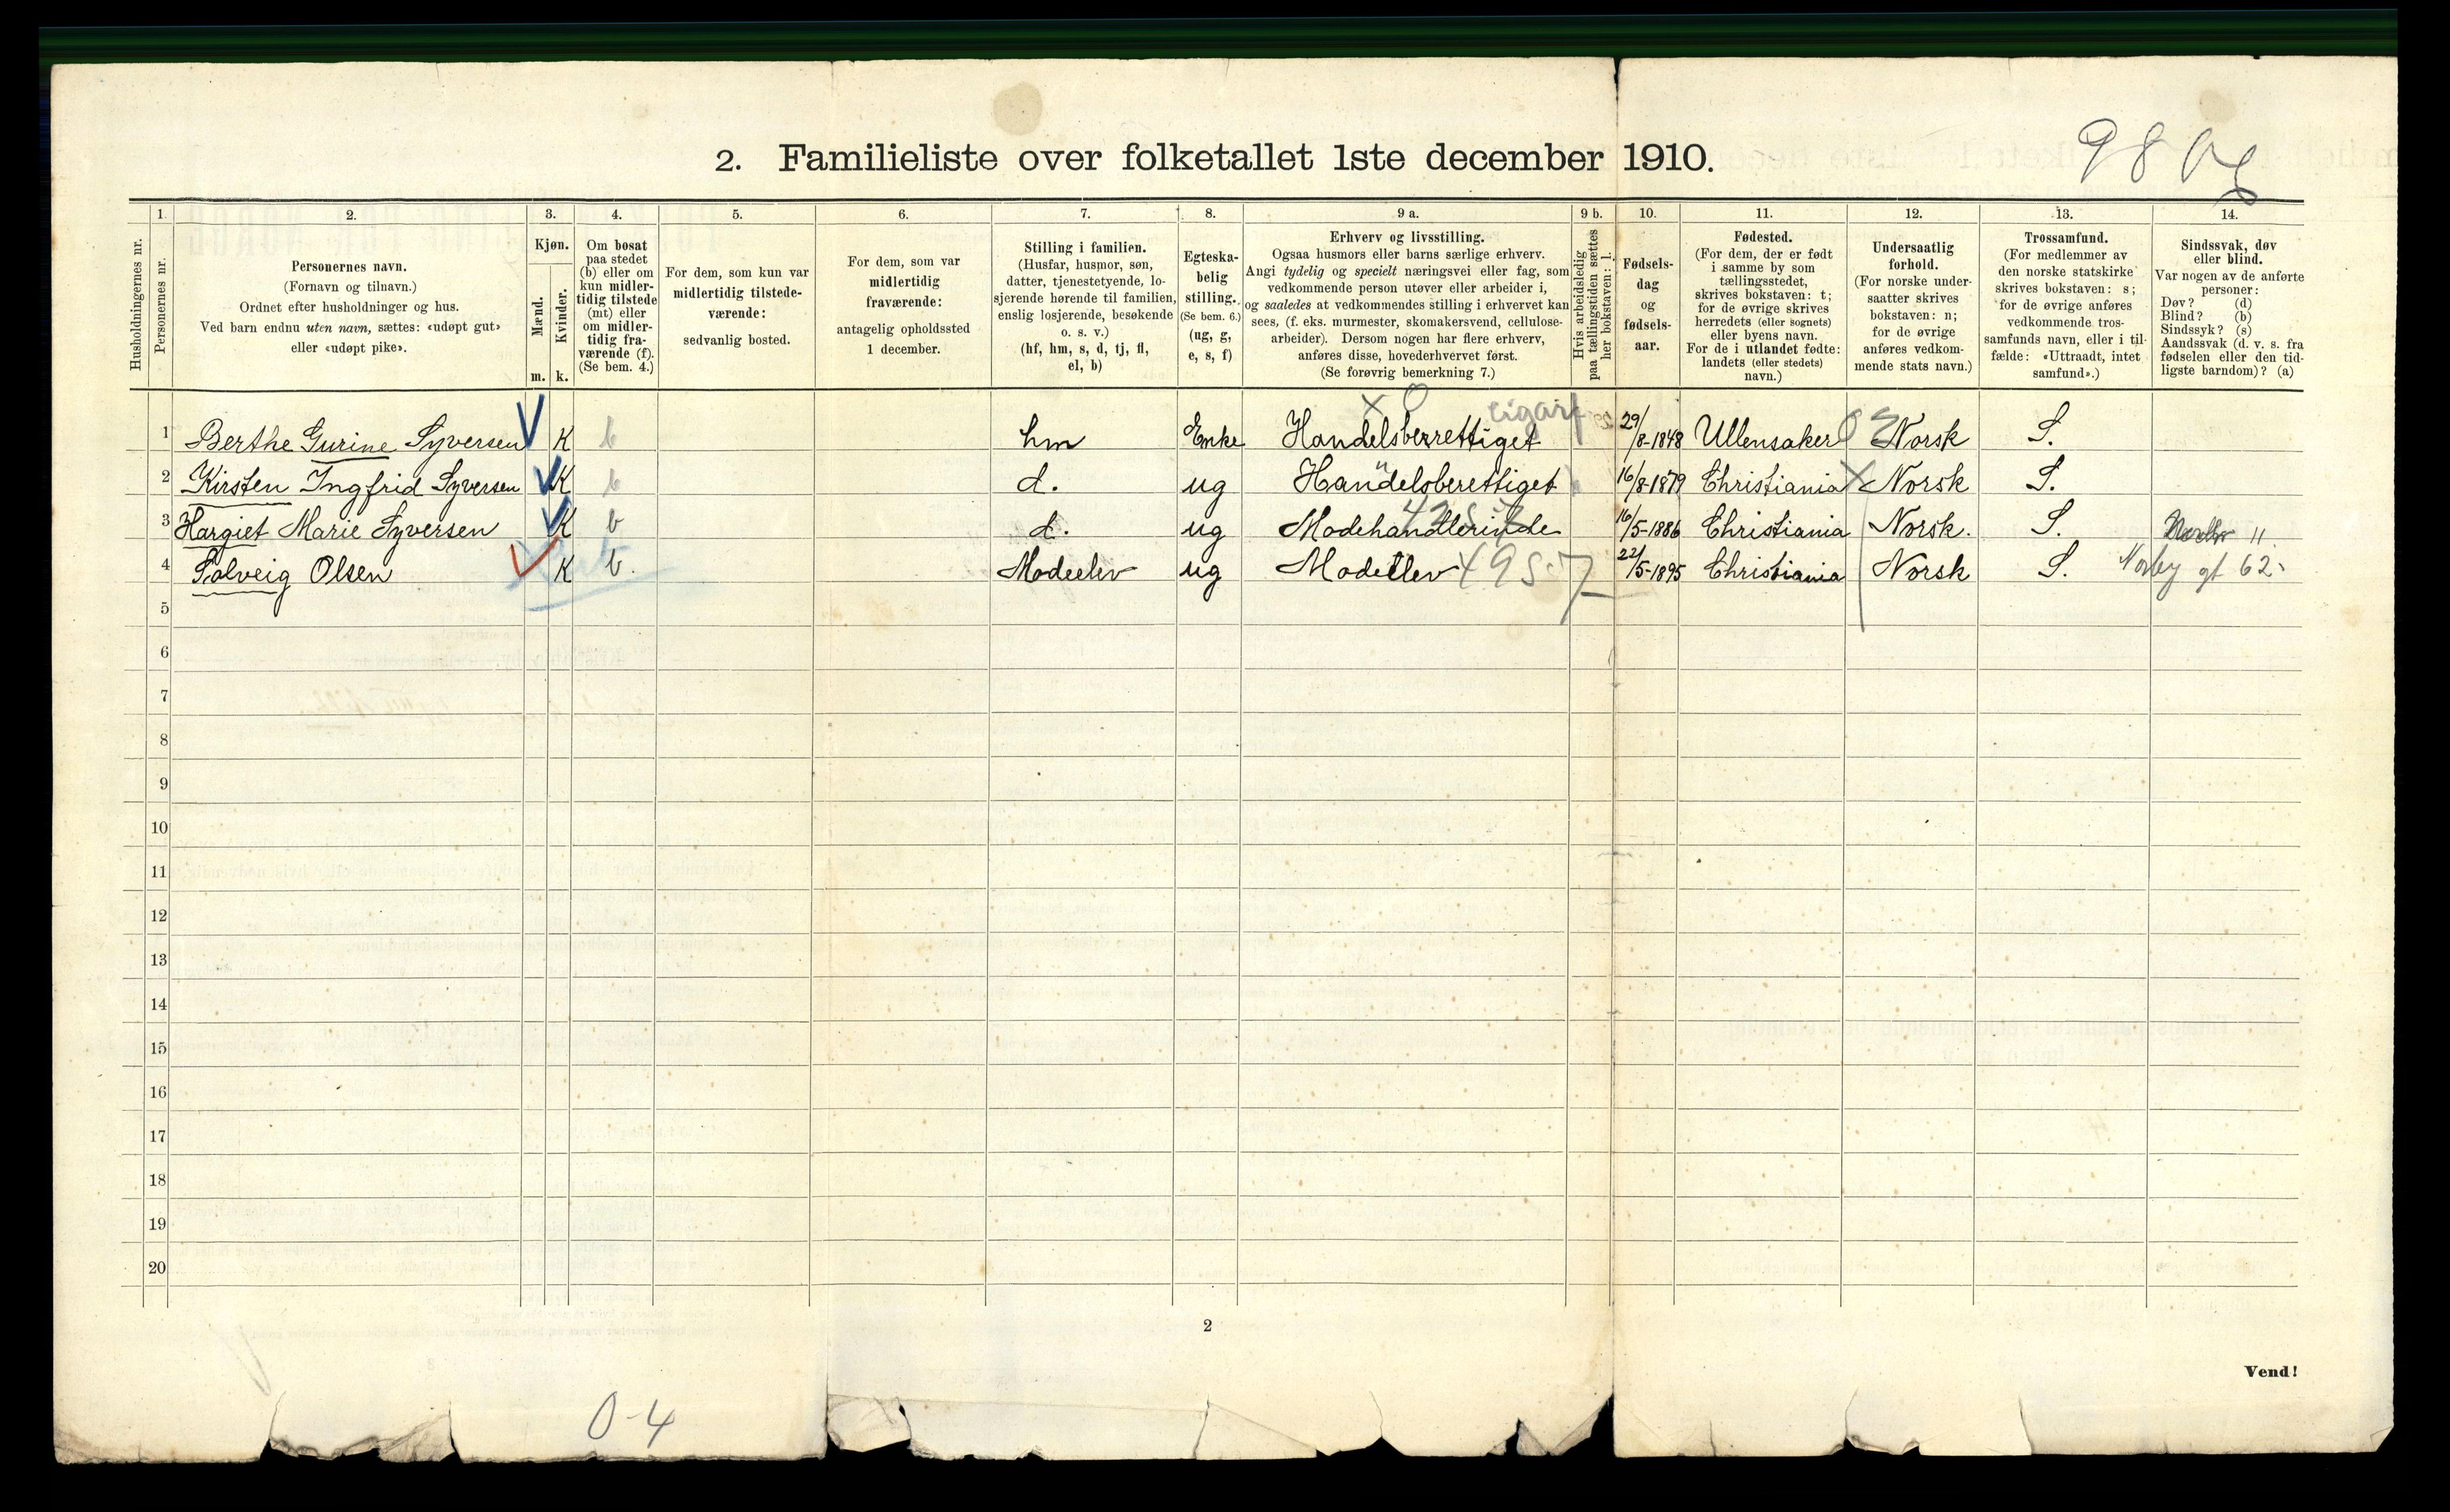 98
2. Familieliste over folketallet 1ste december 1910.
1. 2. 3. 4. 5. 6. 7. 8. 9 a. 9 b. 10. 11. 12. 13. 14.
Husholdningernes nr.
Personernes nr.
Personernes navn.
(Fornavn og tilnavn.)
Ordnet efter husholdninger og hus.
Ved barn endnu uten navn, sættes: «udøpt gut»
eller «udøpt pike».
Kjøn.
Mænd.
Kvinder.
m. k.
Om bosat
paa stedet
(b) eller om
kun midler-
tidig tilstede
(mt) eller
om midler-
tidig fra-
værende (f).
(Se bem. 4.)
For dem, som kun var
midlertidig tilstede-
værende:
sedvanlig bosted.
For dem, som var
midlertidig
fraværende:
antagelig opholdssted
1 december.
Stilling i familien.
(Husfar, husmor, søn,
datter, tjenestetyende, lo-
sjerende hørende til familien,
enslig losjerende, besøkende
o. s. v.)
(hf, hm, s, d, tj, fl,
el, b)
Egteska-
belig
stilling.
(Se bem. 6.)
(ug, g,
e, s, f)
Erhverv og livsstilling.
Ogsaa husmors eller barns særlige erhverv.
Angi tydelig og specielt næringsvei eller fag, som
vedkommende person utøver eller arbeider i,
og saaledes at vedkommendes stilling i erhvervet kan
sees, (f. eks. murmester, skomakersvend, cellulose-
arbeider). Dersom nogen har flere erhverv,
anføres disse, hovederhvervet først.
(Se forøvrig bemerkning 7.)
Hvis arbeidsledig
paa tællingstiden sættes
her bokstaven: l.
Fødsels-
dag
og
fødsels-
aar.
Fødested.
(For dem, der er født
i samme by som
tællingsstedet,
skrives bokstaven: t;
for de øvrige skrives
herredets (eller sognets)
eller byens navn.
For de i utlandet fødte:
landets (eller stedets)
navn.)
Undersaatlig
forhold.
(For norske under-
saatter skrives
bokstaven: n;
for de øvrige
anføres vedkom-
mende stats navn.)
Trossamfund.
(For medlemmer av
den norske statskirke
skrives bokstaven: s;
for de øvrige anføres
vedkommende tros-
samfunds navn, eller i til-
fælde: «Uttraadt, intet
samfund».)
Sindssvak, døv
eller blind.
Var nogen av de anførte
personer:
Døv? (d)
Blind? (b)
Sindssyk? (s)
Aandssvak (d. v. s. fra
fødselen eller den tid-
ligste barndom)? (a)
x 0 cigarf
1 Berthe Gurine Syversen K b hm Enke Handelsberettiget 29/8-1848 Ullensaker Norsk S.
2 Kirsten Ingfrid Syversen K b d. ug Handelsberettiget 16/8-1879 Christiania Norsk S.
3 Hargiet Marie Syversen K b d. ug Modehandlerinde 16/5-1886 Christiania Norsk. S.
4 Solveig Olsen K b. Modeelev ug Modeelev 22/5-1895 Christiania Norsk S. Norby gt 62
5
6
7
8
9
10
11
12
13
14
15
16
17
18
19
20
2
Vend!
0-4